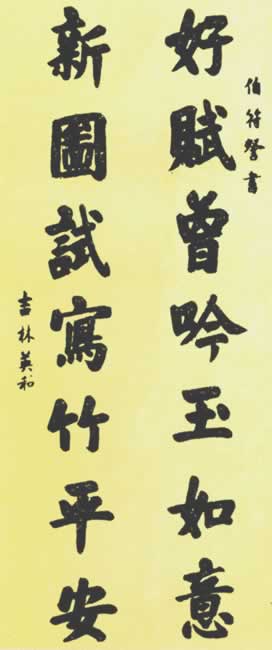 伯符 書
好賦曾吟玉如意
新圖試寫竹平安
吉林英和